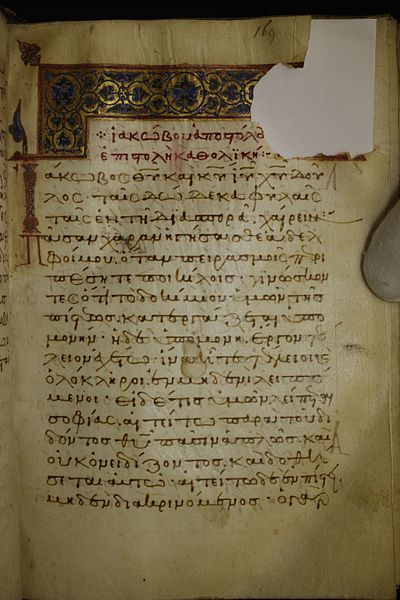 169
ἰακώβου ἀποστόλο
ἐπιστολὴ καθολική
Ἰάκωβος θυ καὶ κυ ιυ χυ δοῦ
λος· ταῖς δώδεκα φυλαῖς
ταῖς ἐν τῆ διασπορᾶ. χαίρειν·
Πᾶσαν χαρὰν ἡγήσασθε ἀδελ
φοί μου, ὅταν πειρασμοῖς περι
πέσητε ποικίλοις· γινώσκον
τες ὅτι τὸ δοκίμιον ὑμῶν τῆς
πίστεως. κατεργάζεται ὑπο
μονήν· ἡ δὲ ὑπομονὴ. ἔργον τέ
λειον ἐχέτω· ἵνα ἦτε τέλειοι καὶ
ὁλόκληροι. ἐν μηδενὶ λειπό
μενοι· εἰ δέ τις ὑμῶν λείπεται
σοφίας. αἰτείτω παρὰ τοῦ δι
δόντος θυ πᾶσιν ἁπλῶς. καὶ
οὐκ ὀνειδίζοντος. καὶ δοθή
σεται αὐτῶ· αἰτείτω δὲ ἐν πίστει.
μηδὲν διακρινόμενος· ὁ γὰρ